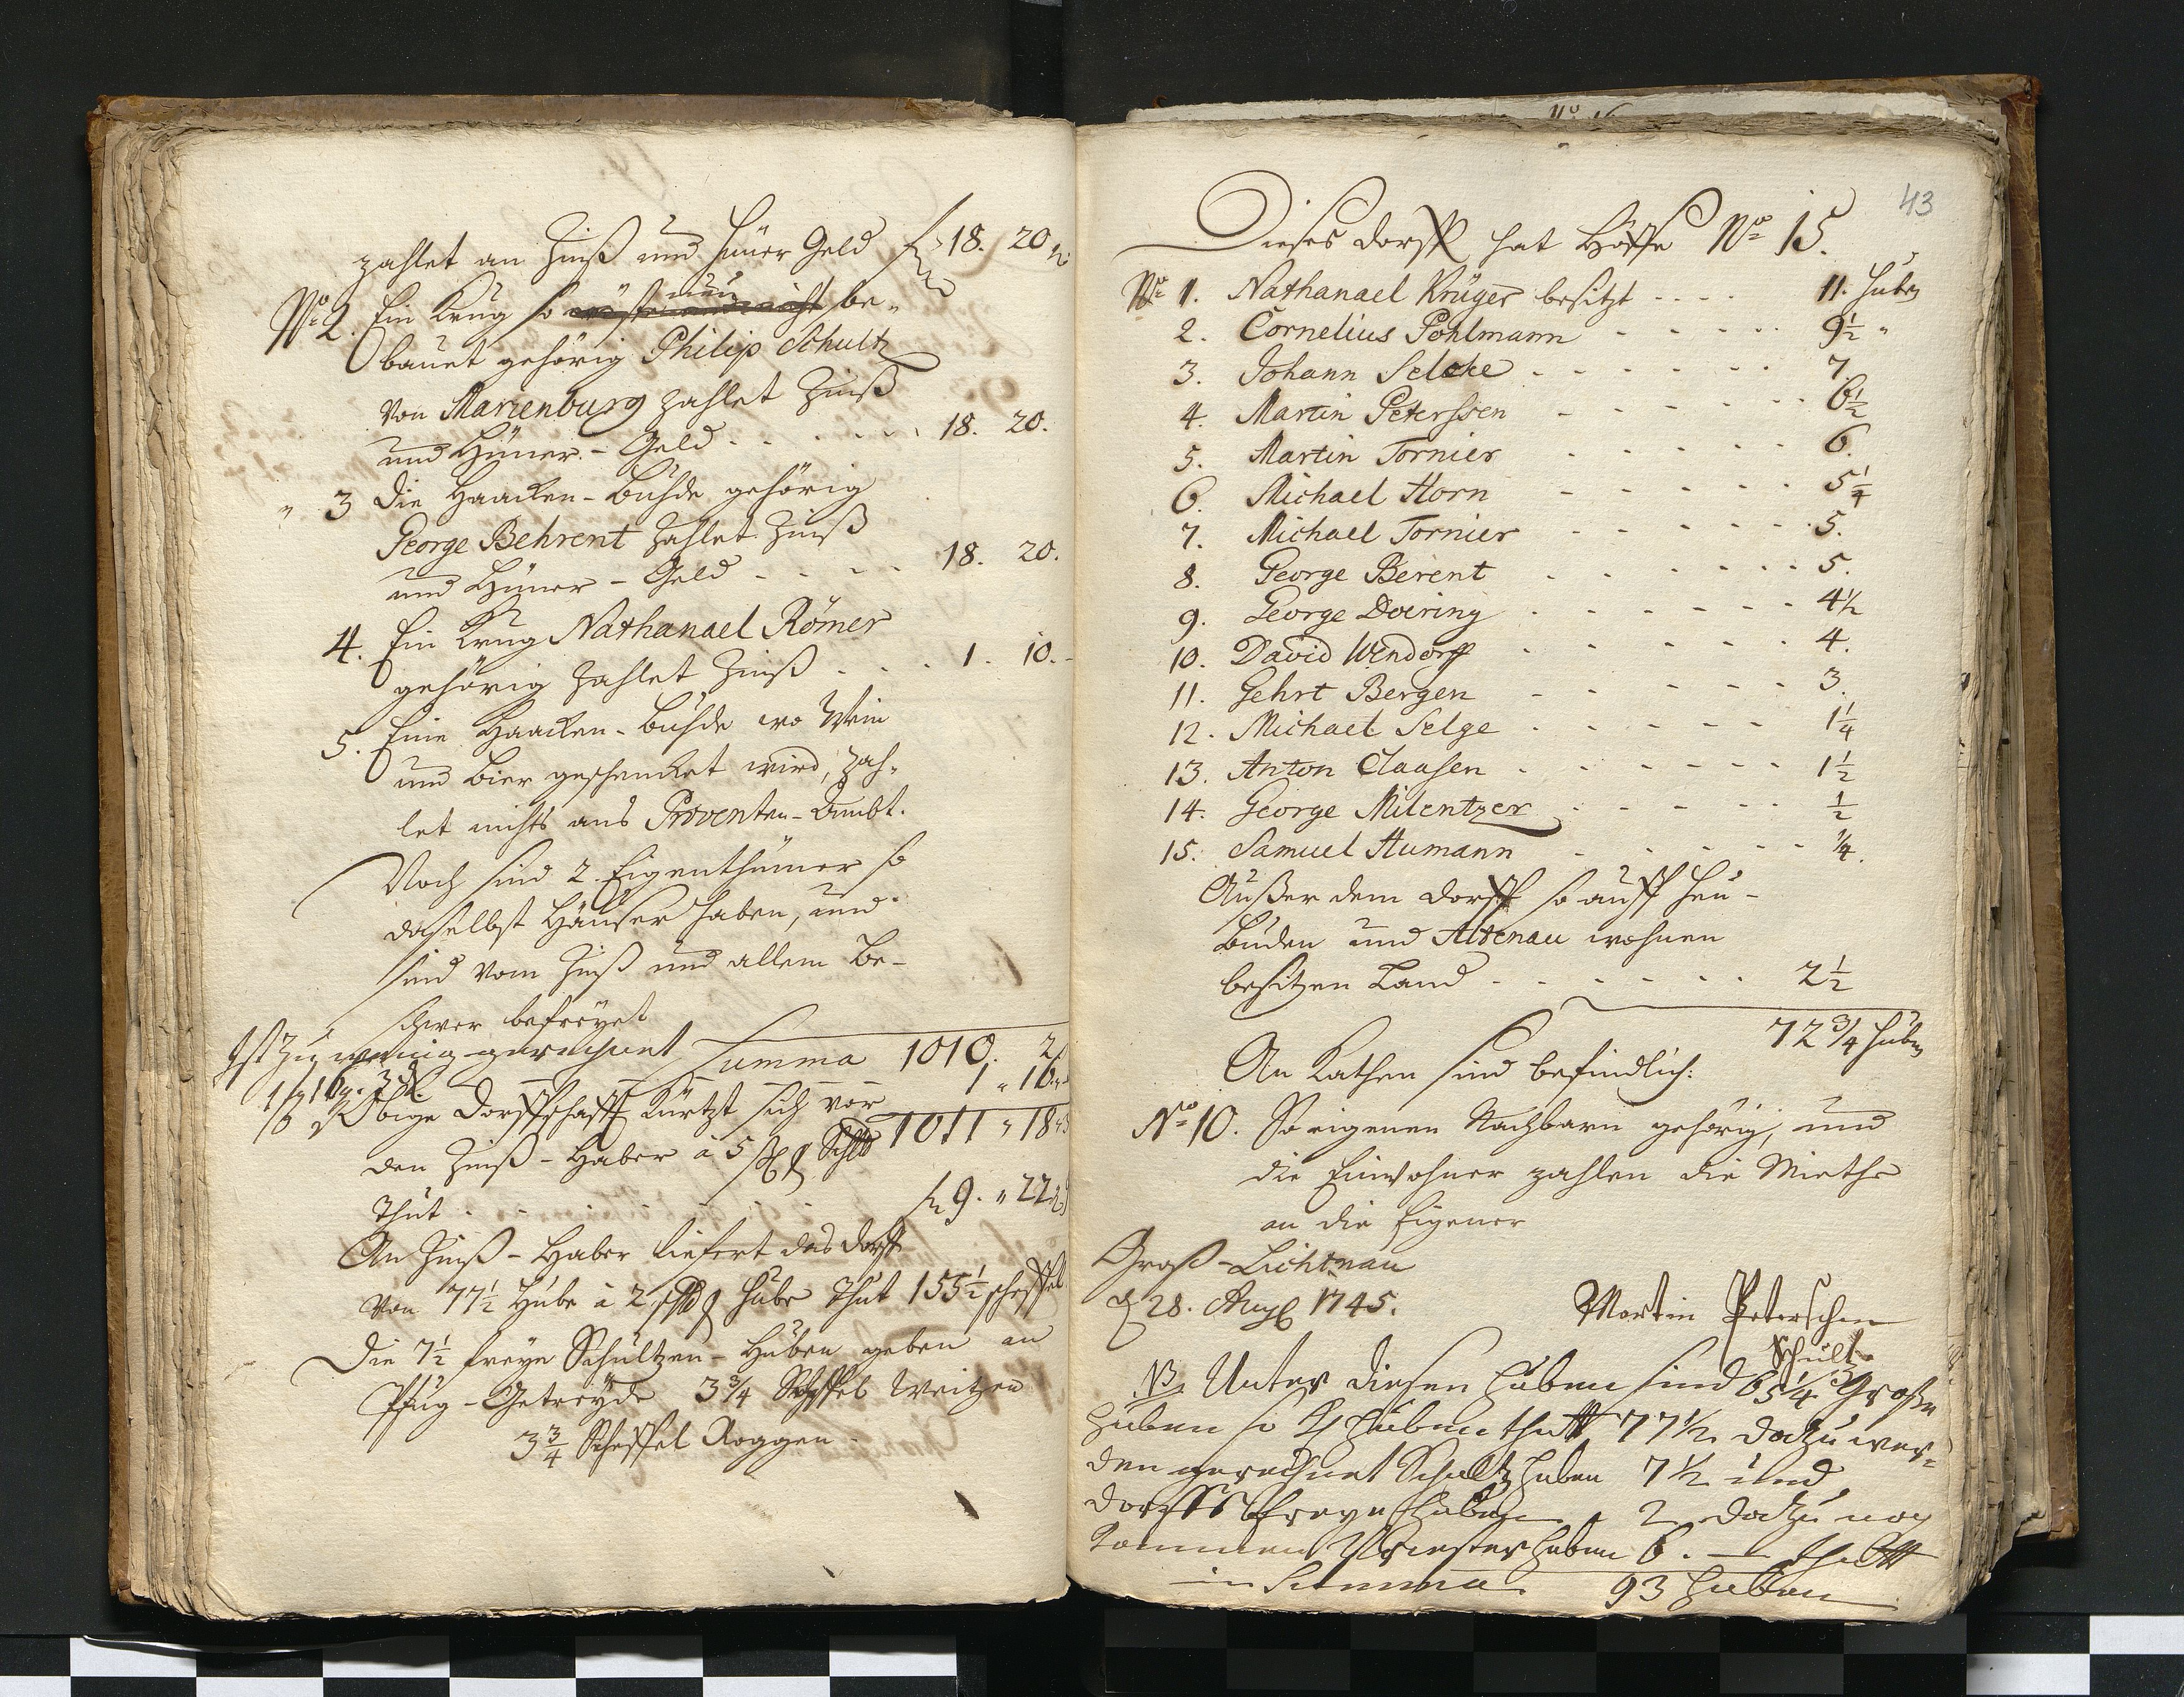 zahlet an Zinß und Hüner Geld f 18. 20
No 2. Ein Krug so nun be-
bauet gehörig Philip Schultz
von Marienburg zahlet Zinß
und Hüner-Geld - - - - 18. 20.
" 3 die Haacken-Buhde gehörig
George Behrent zahlet Zinß
und Hüner-Geld - - - - 18. 20.
4. Ein Krug Nathanael Römer
gehörig zahlet Zinß - - - 1. 10.-
5. Eine Haacken-Buhde wo Wein
und Bier geschencket wird, zah-
let nichts ans Proventen-Ambt.
Noch sind 2. Eigenthümer so
daselbst Häuser haben, und
sind vom Zinß und allem Be-
schwer befreyet
Ist zu wenig gerechnet Summa 1010. 2.
1 f 16 g. 1 " 16
Obige Dorffschafft kürtzt sich vor 1011 " 18
den Zinß-Haber à 5
thut - - - - - f 9. " 22
An Zinß-Haber liefert das Dorff
von 77½ Hube à 2. Hube thut 155½ Scheffel
Die 7½ freye Schultzen-Huben geben an
Pflug-Getreyde 3¾ Scheffel Weitzen
3¾ Scheffel Roggen -
43
Dieses Dorff hat Höffe No 15.
No 1. Nathanael Krüger besitzt - - - - 11. Huben
2. Cornelius Pohlmann - - - - - 9½ "
3. Johann Selcke - - - - - - 7.
4. Martin Peterssen - - - - - - 6½
5. Martin Tornier - - - - 6.
6. Michael Horn - - - - - 5¼
7. Michael Tornier - - - - - 5.
8. George Berent - - - - - - 5.
9. George Doering - - - - - - 4½
10. David Wendorff - - - - - 4.
11. Gehrt Bergen - - - - - - 3.
12. Michael Selge - - - - - 1¼
13. Anton Claasen - - - - - - 1½
14. George Milentzer - - - - - ½
15. Samuel Humann - - - - - ¼.
Außer dem Dorff so auff Heu-
buden und Altenau wohnen
besitzen Land - - - - - - 2½
72¾ Huben
An Kathen sind befindlich:
No 10. So eigenen Nachbarn gehörig, und
die Einwohner zahlen die Miethe
an die Eigener
Groß-Lichtnau
d 28. Aug 1745.
Martin Peterschen
Schultz
NB. Unter diesen Huben sind 65¼ Große
Huben so Huben thutt 77½ dazu wer-
den gerechnet Schultz Huben 7½ und
Dorffs Freye Huben 2 dazu noch
kommen Priester Huben 6. — thutt
in Summa 93 Huben